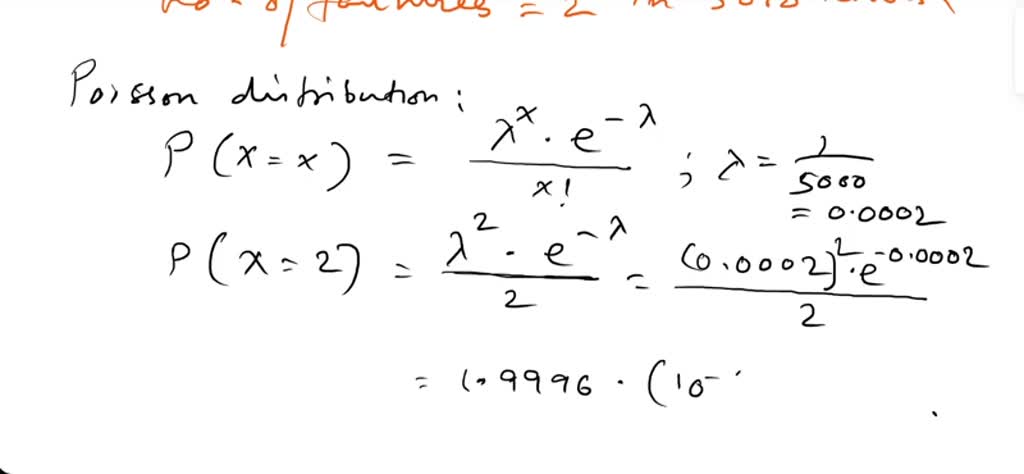 no. of failures = 2 in
Poisson distribution:
P(x=x) = λ^x · e^-λ / x! ; λ = 1/5000
= 0.0002
P(x=2) = λ^2 · e^-λ / 2 = (0.0002)^2 · e^-0.0002 / 2
= 1.9996 · (10^-